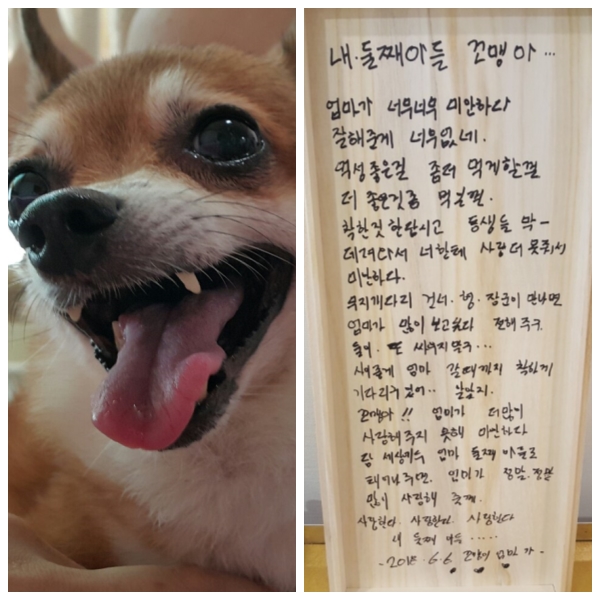 내 둘째아들 꼬맹아...
엄마가 너무너무 미안하다
잘해준게 너무없네.
역성좋은걸 좀더 먹게할껄
더 좋은것좀 먹일껄.
착한짓한답시고 동생들 막-
데려다서 너한테 사랑더 못줘서
미안하다.
무지개다리 건너. 형. 장군이 만나면
엄마가 많이 보고싶다 전해주구
둘이. 또 싸우지말구...
사이좋게 엄마 갈때까지 착하게
기다리구 있어.. 알았지.
꼬맹아!! 엄마가 더많이
사랑해주지 못해 미안하다
담 세상에도 엄마 둘째 아들로
태어나주면. 엄마가 정말. 정말
많이 사랑해 줄께.
사랑한다. 사랑한다. 사랑한다
내 둘째 아들.....
-2018.6.6 꼬맹이 엄마 가-